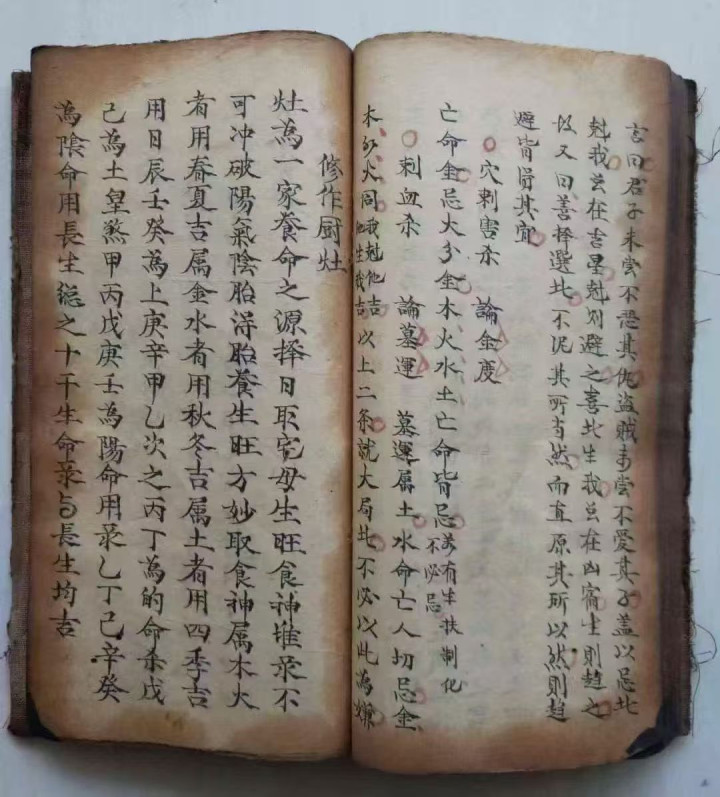 言曰君子未嘗不恐其仇盜賊未嘗不愛其子盖以忌此
尅我並在吉星尅則避之喜此生我並在凶宿生則趋之
故又曰善择選此不泥其所当然而直原其所以然則趋
避皆得其宜
穴刺害杀 論金度
亡命金忌大分金木火水土亡命皆忌若有生扶制化
不必忌
刺血杀 論墓運 墓運属土水命亡人切忌金
木分火同我尅他吉他生我吉以上二条就大局此不必以此為嫌
修作厨灶
灶為一家養命之源择日取宅母生旺食神堆录不
可冲破陽氣陰胎得胎養生旺方妙取食神属木火
者用春夏吉属金水者用秋冬吉属土者用四季吉
用日辰壬癸為上庚辛甲乙次之丙丁為的命杀戊
己為土皇煞甲丙戊庚壬為陽命用录乙丁己辛癸
為陰命用長生總之十干生命录与長生均吉